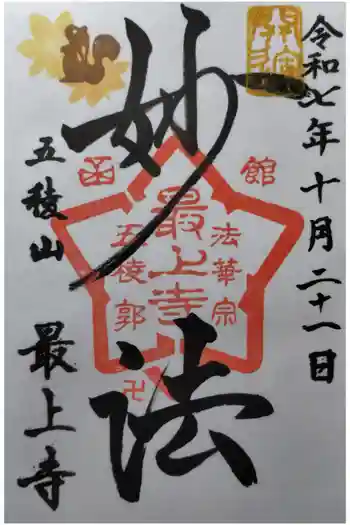 令和七年十月二十一日
妙法
函館
法華宗
最上寺
五稜郭
卍
五稜山
最上寺